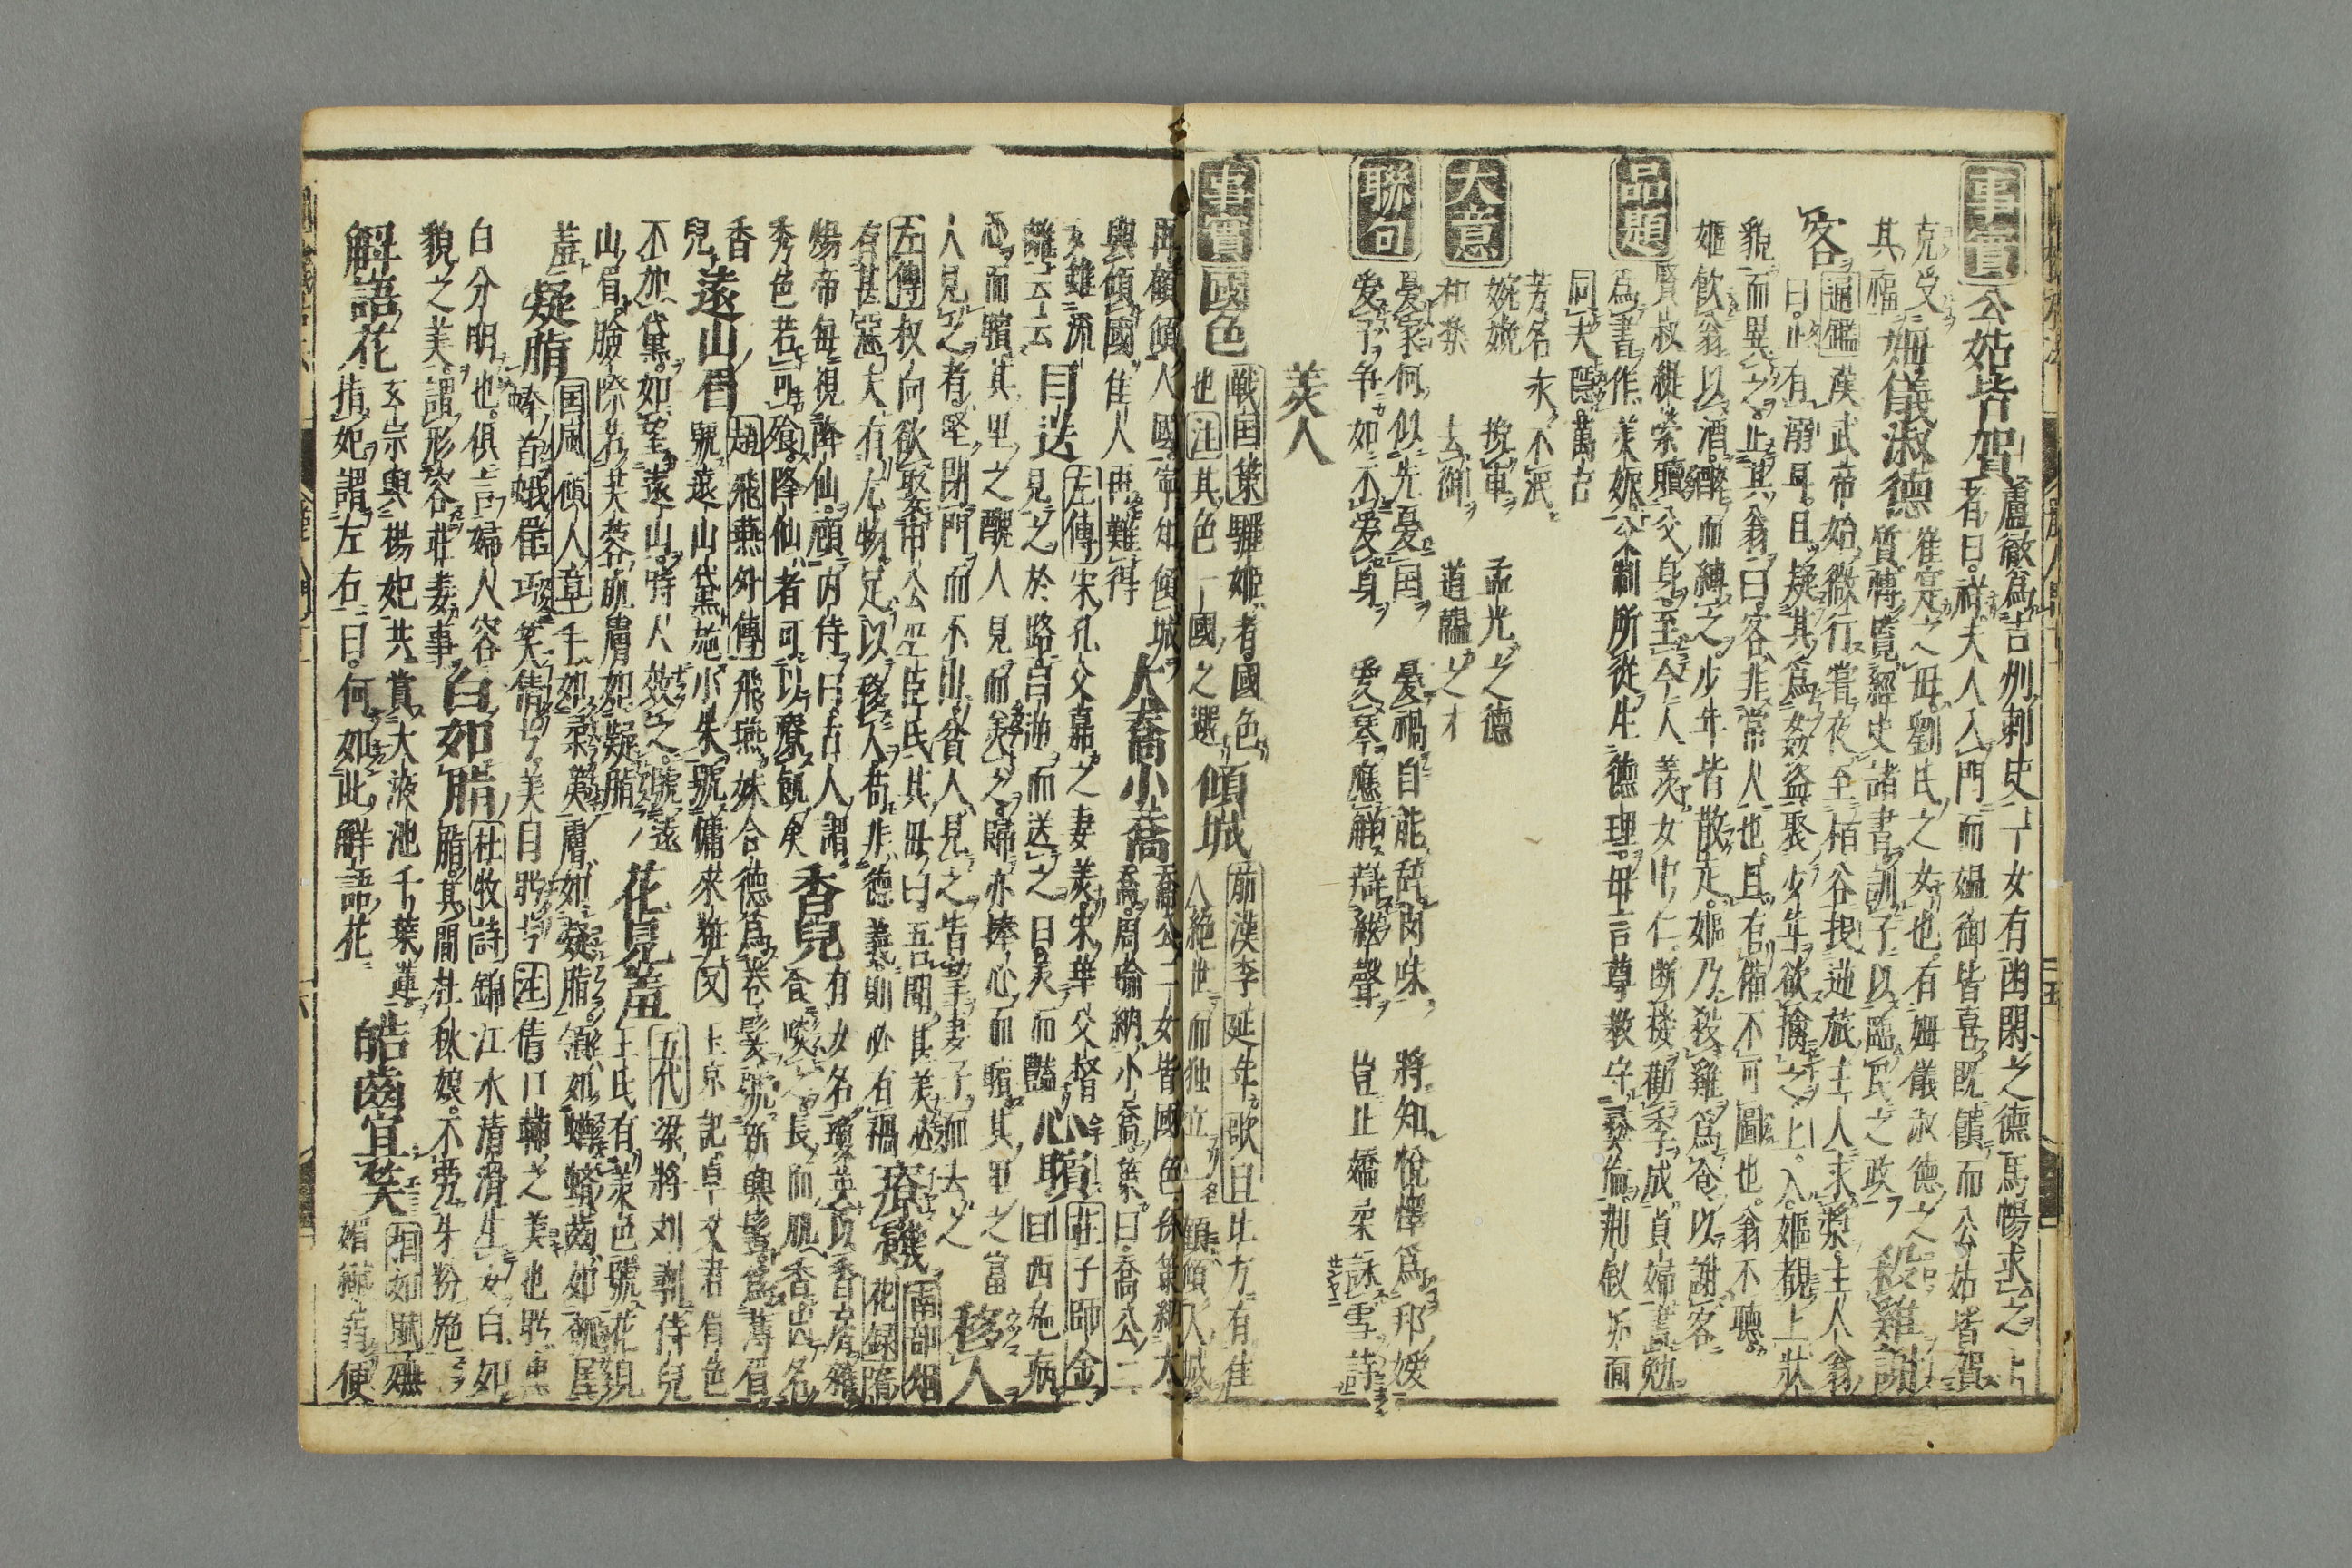 事實 公姑皆賀 盧徹為吉州刺史一女有幽閑之德馬暢求之占
者曰祥夫人入門而媼御皆喜既饋而公姑皆賀
克受 崔寔之母劉氏之女也有姆儀淑德之
其福 姆儀淑德 質博覧經史諸書訓子以臨民之政 殺雞謝
客 通鑑 漢武帝始微行嘗夜至柏谷投逆旅主人求漿主人翁
曰此有溺耳且疑其為姦盗聚少年欲擒之上入嫗覩上狀
貌而異之止其翁曰客非常人也且有備不可圖也翁不聽
嫗飲翁以酒醉而縛之少年皆散走嫗乃殺雞為食以謝客
品題 賢叔緹縈贖父身至今人羨女中仁断機勸季成貞婦書勉
為書作美娠宋制所從生德理毋言尊教守彝倫荆釵所面
同夫隱萬古
芳名永不泯
大意 婉娩 挽車 孟光之德
和柔 去御 道韞之才
聯句 憂家何似先憂国 憂禍自能辞閔味 將知悅懌為邦媛
愛子争如不愛身 愛琴應解辯絃聲 豈止嬌柔詠雪詩
美人
事實 國色 戦国策 驪姬者國色
也 注 其色一國之選 傾城 前漢李延年歌曰 北方有佳
人絶世而独立一顧傾人城
再顧傾人國寧知傾城 大喬小喬 喬公二女皆國色孫策納大
與傾國佳人再難得 喬周瑜納小喬策曰喬公二
女雖流 目送 左傳 宋孔父嘉之妻美宋華父督
離云云 見之於路目逆而送之曰美而豔 心矉 莊子師金
曰西施病
心而矉其里之醜人見而美之歸亦捧心而矉其里之富
人見之者堅閉門而不出貧人見之皆挈妻子而去之 移人
左傳 叔向欲娶申公巫臣氏其母曰吾聞甚美必
有甚惡夫有尤物足以移人苟非德義則必有禍 療飢 南部烟
花録 隋
煬帝每視降仙顧内侍曰古人謂 有女名瑶英以香屑雜
秀色若可飡降仙者可以療飢矣 香兒 食啖之長而肌香出名
香 趙飛燕外傳 飛燕妹合德為卷髪號新興髻為薄眉
兒 遠山眉 號遠山黛施小朱號慵來粧 又 上京記卓文君眉色
不加黛如望遠山時人效之號遠 五代 梁將刘𨞬侍兒
山眉臉際若芙蓉肌膚如凝脂 花見羞 王氏有美色號花見
羞 凝脂 国風碩人章 手如柔荑膚如凝脂領如蝤蠐齒如瓠犀
螓首蛾眉巧笑倩兮美目盼兮 注 倩口輔之美也盼黒
白分明也俱言婦人容 白如脂 杜牧詩 錦江水清滑生女白如
貌之美謂形容莊妻事 脂其間杜秋娘不労朱粉施
解語花 玄宗與楊妃共賞大液池千葉蓮 皓齒宜笑 相如賦 嫵
指妃謂左右曰何如此解語花 媚 便